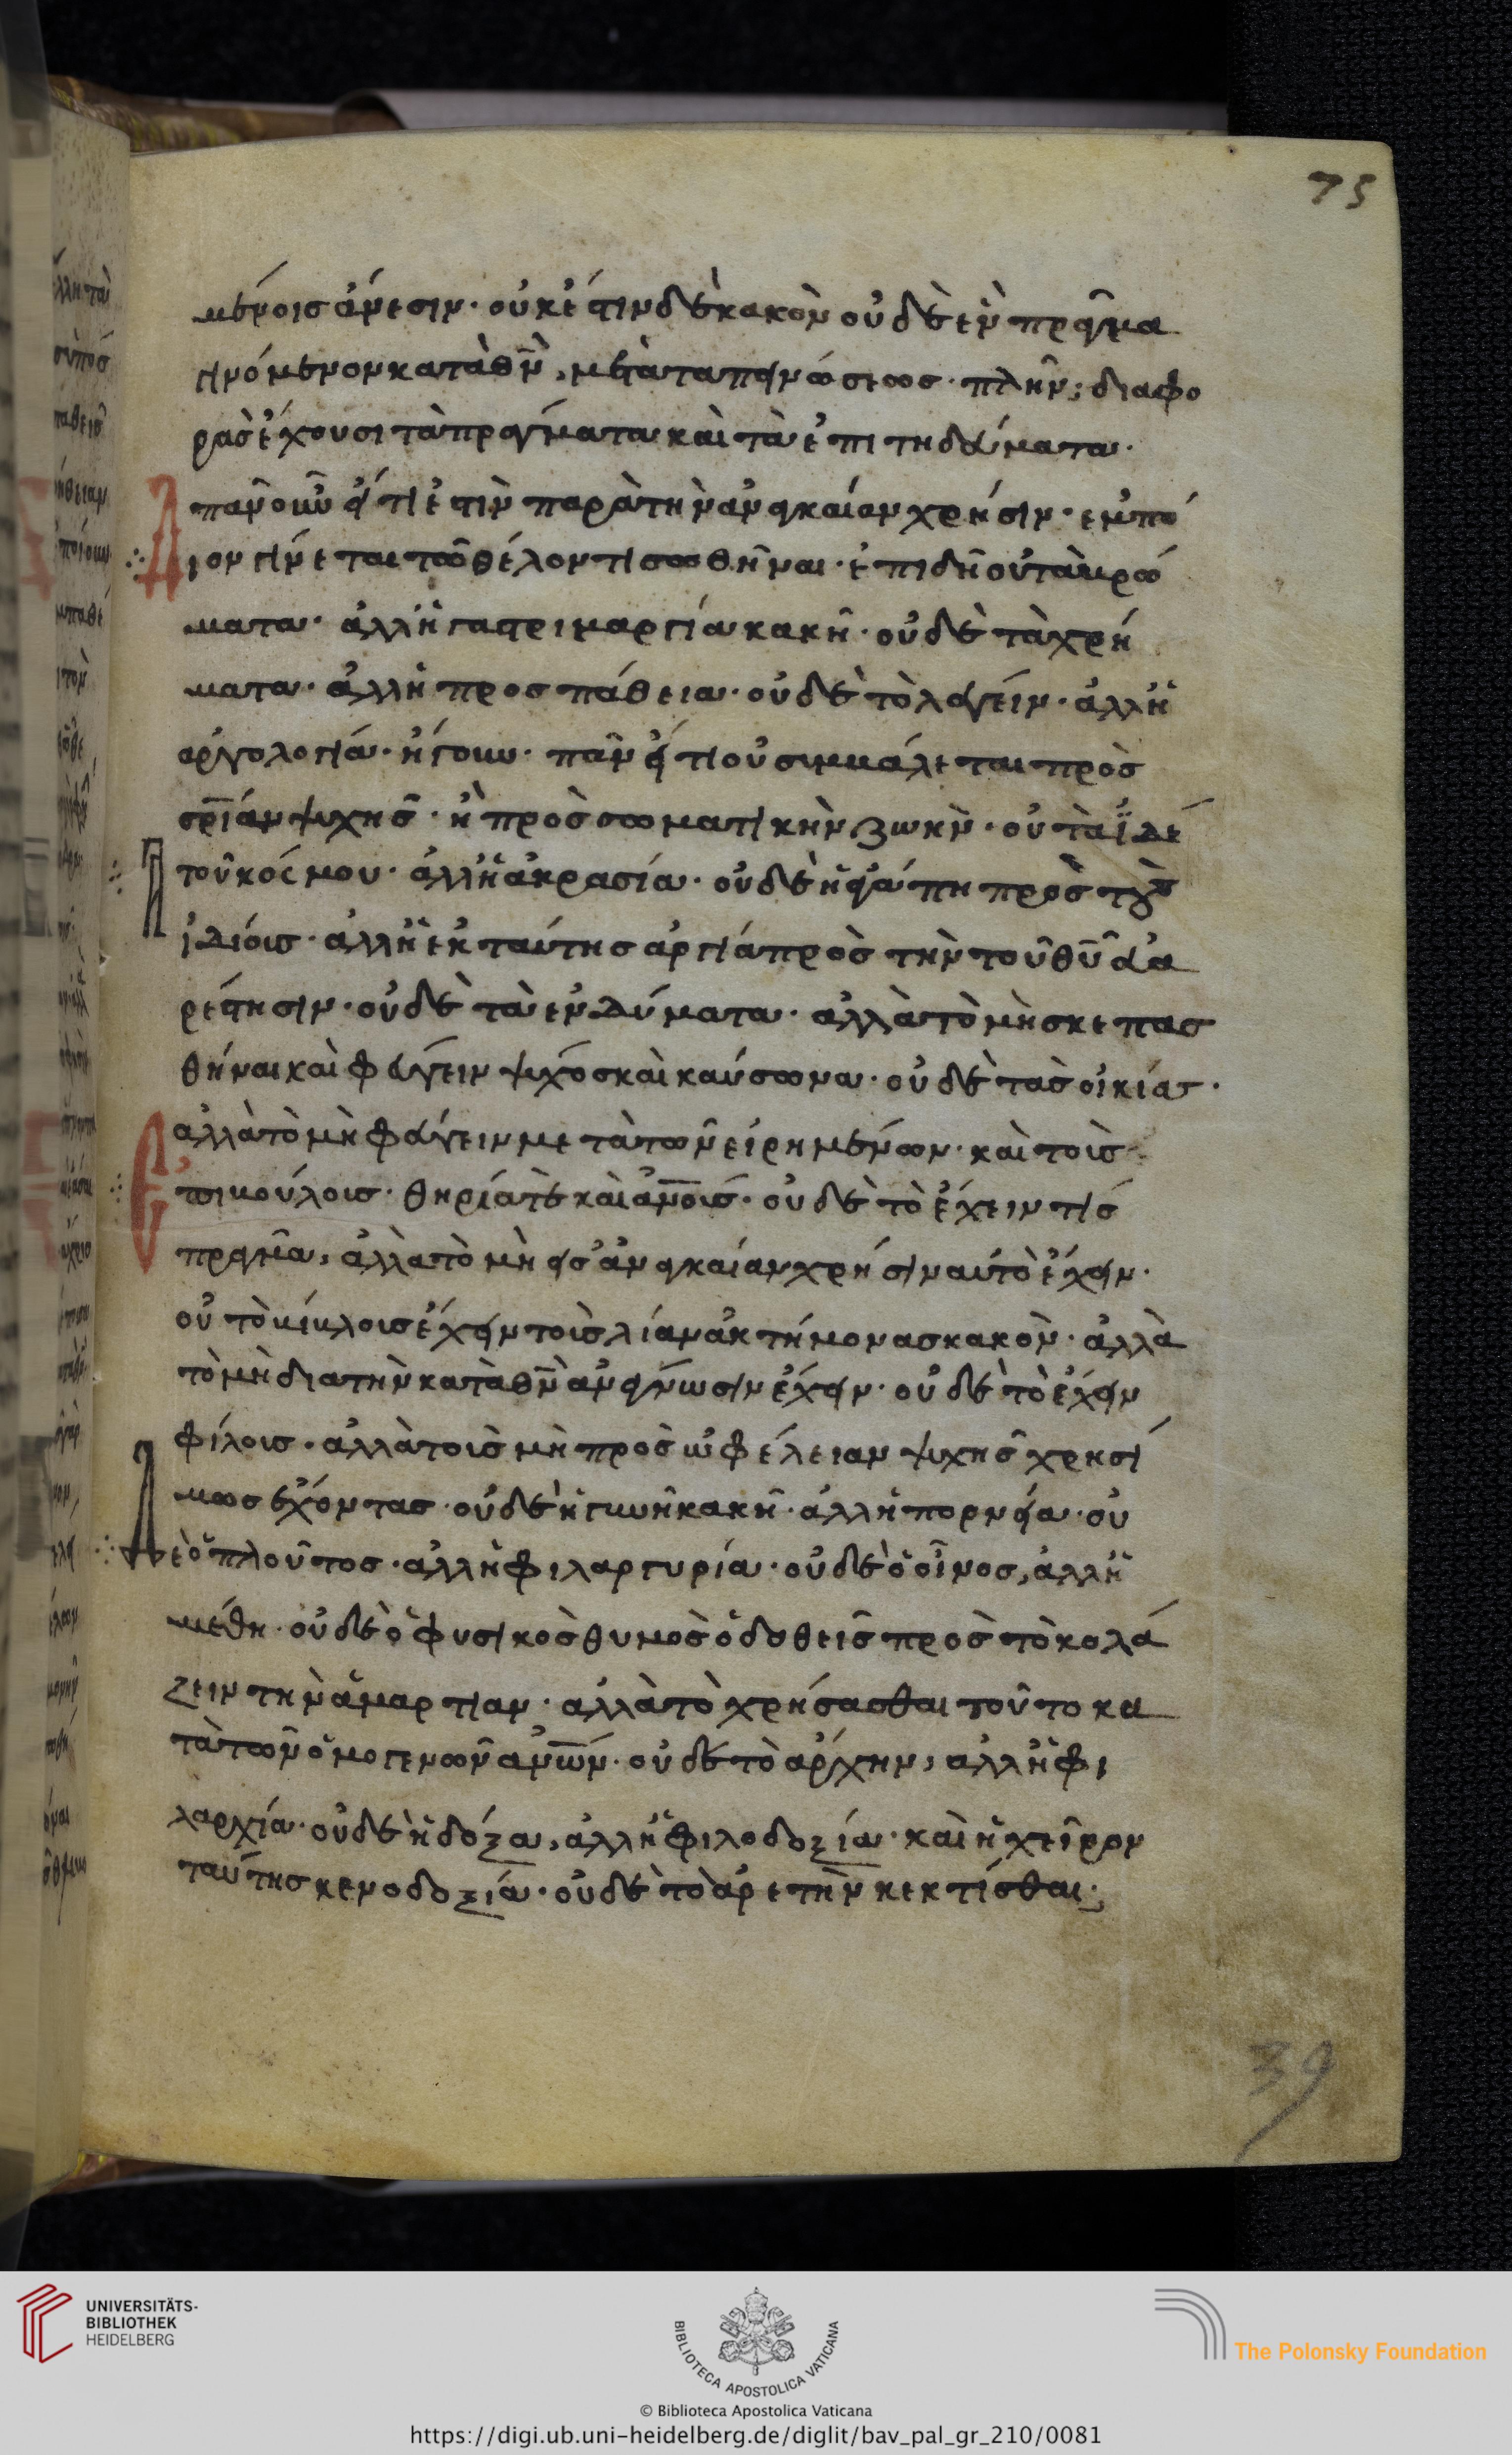 75
μένοις ἄνεσιν· οὐκ ἔστιν δὲ κακὸν οὐδὲ ἓν πρᾶγμα
γινόμενον κατὰ θν̅, μετὰ ταπεινώσεως· πλὴν, διαφο
ρὰς ἔχουσι τὰ πράγματα καὶ τὰ ἐπιτηδεύματα·
πᾶν οὖν εἴ τι ἐστὶν παρὰ τὴν ἀναγκαίαν χρῆσιν· ἐμπό
διον γίνεται τῶ θέλοντι σωθῆναι· ἐπιδὴ οὐ τὰ βρώ
ματα· ἀλλ' ἡ γαστριμαργία κακὴ· οὐδὲ τὰ χρή
ματα· ἀλλ' ἡ προσπάθεια· οὐδὲ τὸ λαλεῖν· ἀλλ' ἡ
ἀργολογία· ἤγουν· πᾶν εἴ τι οὐ συμβάλεται πρὸς
σρ̅ίαν ψυχῆς· ἢ πρὸς σωματικὴν ζωὴν· οὐ τὰ ἡδέα
τοῦ κόσμου· ἀλλ' ἡ ἀκρασία· οὐδὲ ἡ ἀγάπη πρὸς τοὺς
ἰδίοις· ἀλλ' ἡ ἐκ ταύτης ἀργία πρὸς τὴν τοῦ θυ̅ εὐα
ρέστησιν· οὐδὲ τὰ ἐνδύματα· ἀλλὰ τὸ μὴ σκεπασ
θῆναι καὶ φυγεῖν ψύχος καὶ καύσωνα· οὐδὲ τὰς οἰκίας·
ἀλλὰ τὸ μὴ φυγεῖν μετὰ τῶν εἰρημένων· καὶ τοὺς
ἐπιβούλοις· θηρία τὲ καὶ ἀν̅οις· οὐδὲ τὸ ἔχειν τίς
πρᾶγμα, ἀλλὰ τὸ μὴ εἰς ἀναγκαίαν χρῆσιν αὐτὸ ἔχειν·
οὐ τὸ βίβλοις ἔχειν τοὺς λίαν ἀκτήμονας κακὸν· ἀλλὰ
τὸ μὴ διὰ τὴν κατὰ θν̅ ἀνάγνωσιν ἔχειν· οὐδὲ τὸ ἔχειν
φίλοις· ἀλλὰ τοὺς μὴ πρὸς ὠφέλειαν ψυχῆς χρησί
μως ἔχοντας· οὐδὲ ἡ γυνὴ κακὴ· ἀλλ' ἡ πορνεία· οὐ
δὲ ὁ πλοῦτος· ἀλλ' ἡ φιλαργυρία· οὐδὲ ὁ οἶνος, ἀλλ' ἡ
μέθη· οὐδὲ ὁ φυσικὸς θυμὸς ὁ δοθεὶς πρὸς τὸ κολά
ζειν τὴν ἁμαρτίαν· ἀλλὰ τὸ χρήσασθαι τοῦτο κα
τὰ τῶν ὁμογενῶν ἀν̅ων· οὐδὲ τὸ ἄρχην, ἀλλ' ἡ φι
λαρχία· οὐδὲ ἡ δόξα, ἀλλ' ἡ φιλοδοξία· καὶ ἡ χεῖρον
ταύτης κενοδοξία· οὐδὲ τὸ ἀρετὴν κεκτίσθαι·
39
UNIVERSITÄTS-
BIBLIOTHEK
HEIDELBERG
BIBLIOTECA APOSTOLICA VATICANA
The Polonsky Foundation
© Biblioteca Apostolica Vaticana
https://digi.ub.uni-heidelberg.de/diglit/bav_pal_gr_210/0081